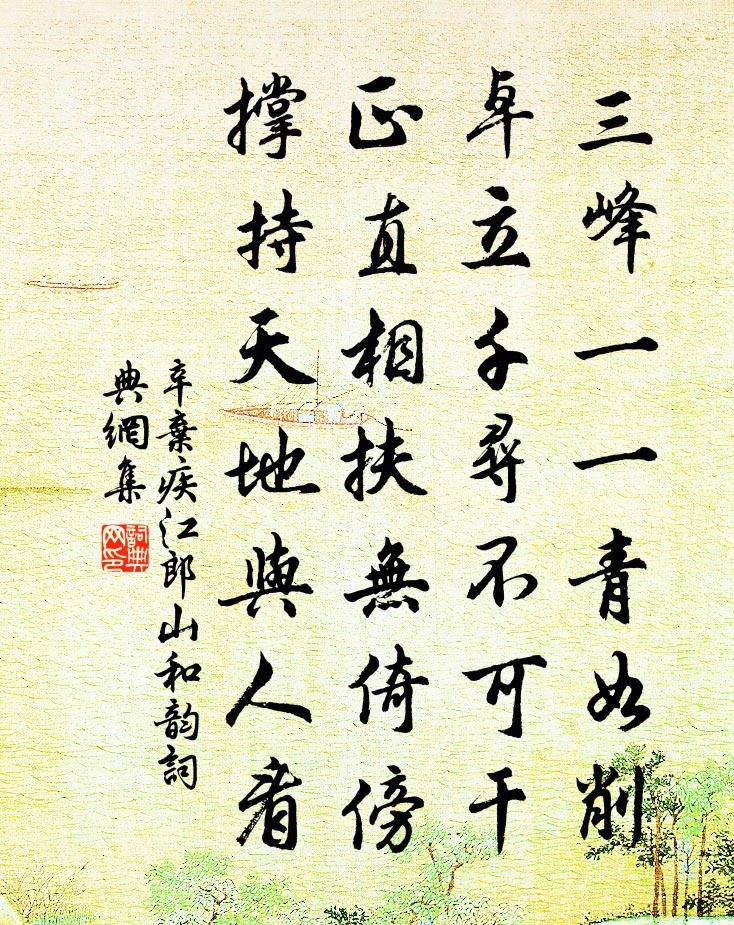 三峰一一青如削
卓立千尋不可干
正直相扶無倚傍
撑持天地與人看
辛棄疾江郎山和韵詞
典網集
詞典
网印